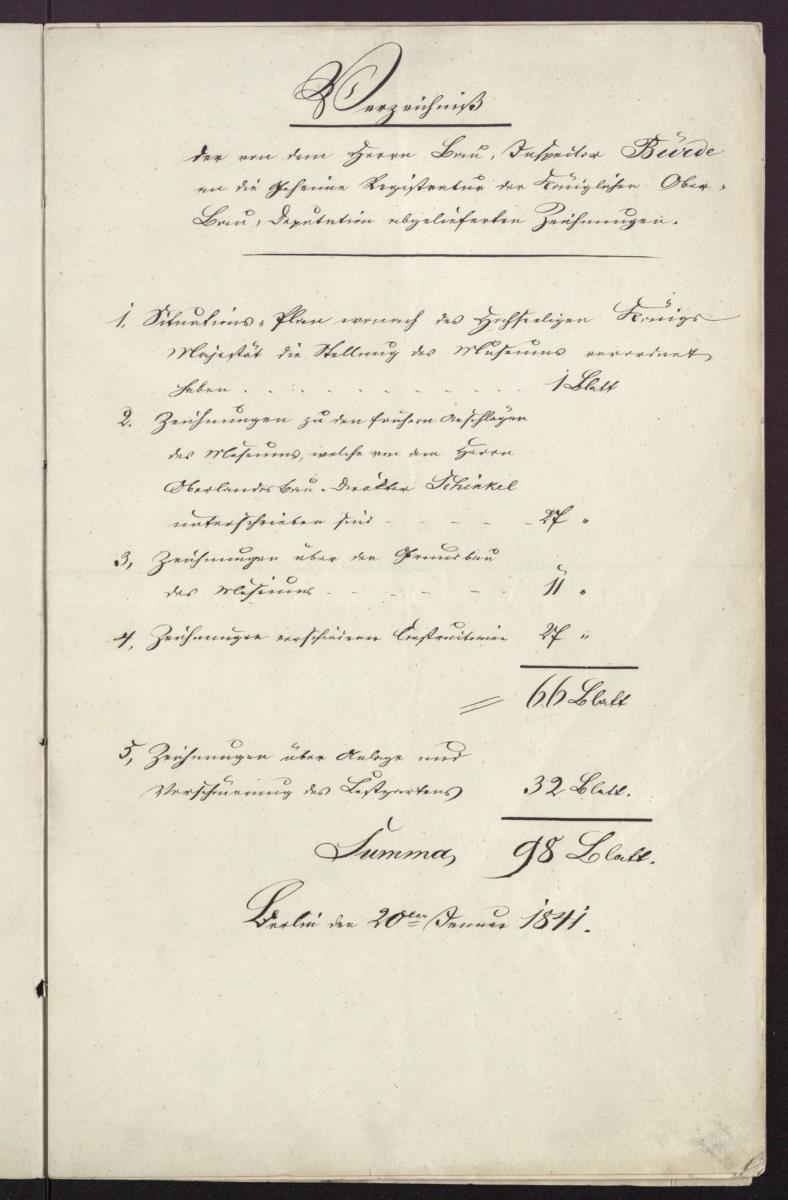 Verzeichniß
der von dem Herrn Bau-Inspector Bürde
an die Geheime Registratur der Königlichen Ober-
Bau-Deputation abgelieferten Zeichnungen.
1, Situations-Plan wonach des Hochseeligen Königs
Majestät die Stellung des Museums verordnet
haben . . . . . . . . . . 1 Blatt
2. Zeichnungen zu den frühern Anschlägen
des Museums, welche von dem Herrn
Oberlandesbau-Direktor Schinkel
unterschrieben sind - - - - - 27 "
3, Zeichnungen über den Grundbau
des Museums - - - - - - 11 "
4, Zeichnungen verschiedener Constructionen 27 "
= 66 Blatt
5, Zeichnungen über Anlage und
Verschönerung des Lustgartens 32 Blatt.
Summa, 98 Blatt.
Berlin den 20ten Januar 1841.